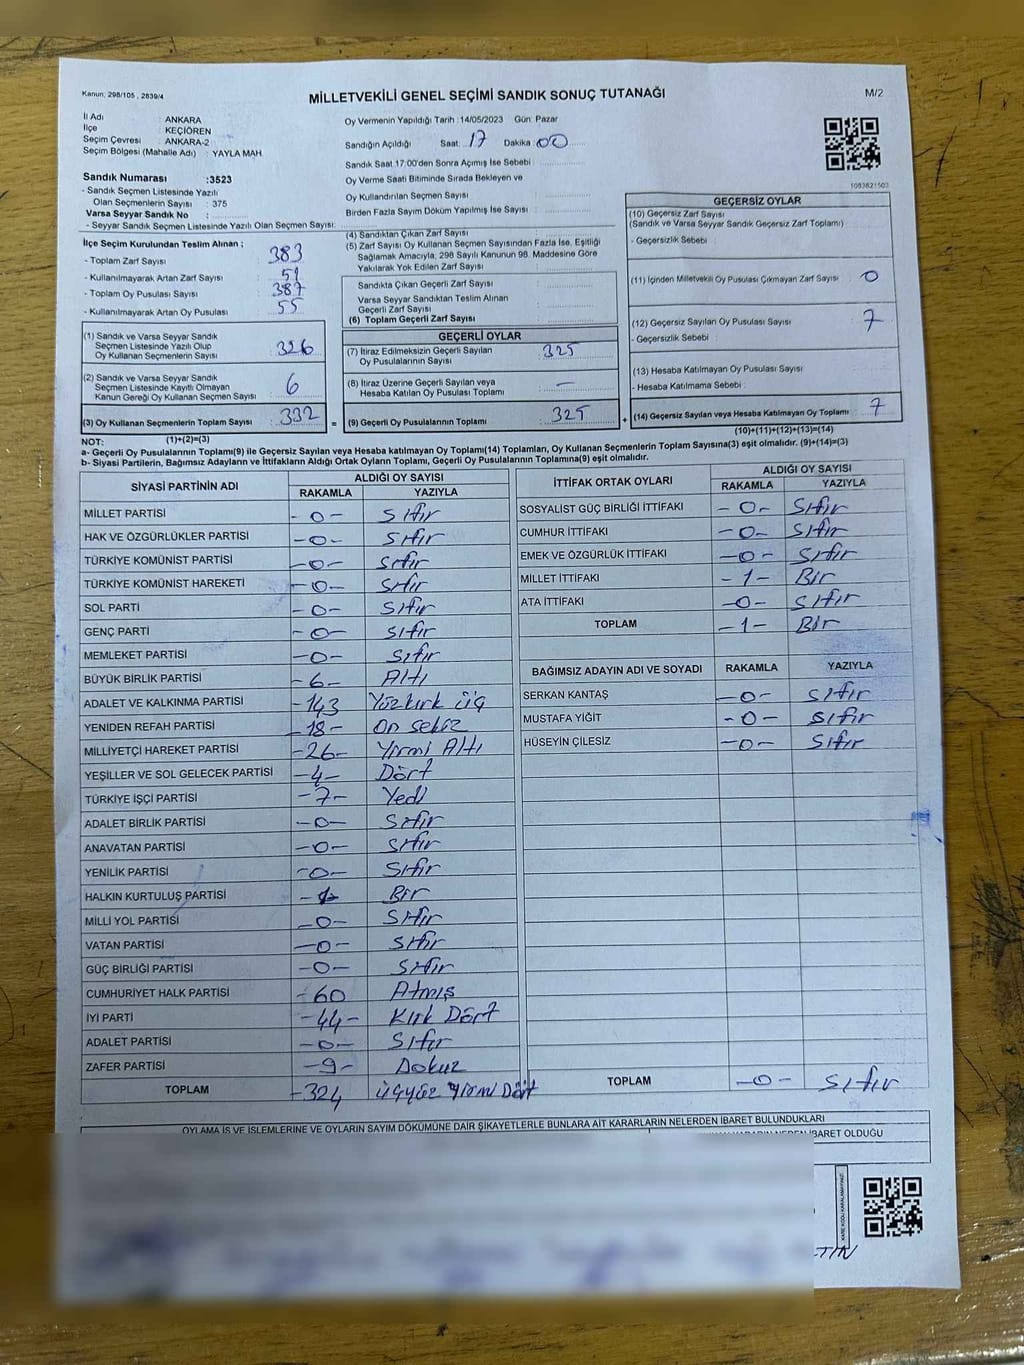 Kanun: 298/105 , 2839/4
MİLLETVEKİLİ GENEL SEÇİMİ SANDIK SONUÇ TUTANAĞI
M/2
İl Adı : ANKARA
İlçe : KEÇİÖREN
Seçim Çevresi : ANKARA-2
Seçim Bölgesi (Mahalle Adı) : YAYLA MAH
Sandık Numarası :3523
- Sandık Seçmen Listesinde Yazılı
Olan Seçmenlerin Sayısı : 375
Varsa Seyyar Sandık No :
- Seyyar Sandık Seçmen Listesinde Yazılı Olan Seçmen Sayısı:
Oy Vermenin Yapıldığı Tarih :14/05/2023 Gün: Pazar
Sandığın Açıldığı Saat: 17 Dakika: 00
Sandık Saat 17:00'den Sonra Açımış İse Sebebi :
Oy Verme Saati Bitiminde Sırada Bekleyen ve
Oy Kullandırılan Seçmen Sayısı :
Birden Fazla Sayım Döküm Yapılmış İse Sayısı :
1083821503
İlçe Seçim Kurulundan Teslim Alınan ;
- Toplam Zarf Sayısı : 383
- Kullanılmayarak Artan Zarf Sayısı : 51
- Toplam Oy Pusulası Sayısı : 387
- Kullanılmayarak Artan Oy Pusulası : 55
(1) Sandık ve Varsa Seyyar Sandık
Seçmen Listesinde Yazılı Olup
Oy Kullanan Seçmenlerin Sayısı : 326
(2) Sandık ve Varsa Seyyar Sandık
Seçmen Listesinde Kayıtlı Olmayan
Kanun Gereği Oy Kullanan Seçmen Sayısı : 6
(3) Oy Kullanan Seçmenlerin Toplam Sayısı : 332
(4) Sandıktan Çıkan Zarf Sayısı :
(5) Zarf Sayısı Oy Kullanan Seçmen Sayısından Fazla İse, Eşitliği
Sağlamak Amacıyla, 298 Sayılı Kanunun 98. Maddesine Göre
Yakılarak Yok Edilen Zarf Sayısı :
Sandıkta Çıkan Geçerli Zarf Sayısı :
Varsa Seyyar Sandıktan Teslim Alınan
Geçerli Zarf Sayısı :
(6) Toplam Geçerli Zarf Sayısı :
GEÇERLİ OYLAR
(7) İtiraz Edilmeksizin Geçerli Sayılan
Oy Pusulalarının Sayısı : 325
(8) İtiraz Üzerine Geçerli Sayılan veya
Hesaba Katılan Oy Pusulası Toplamı : —
= (9) Geçerli Oy Pusulalarının Toplamı : 325 +
GEÇERSİZ OYLAR
(10) Geçersiz Zarf Sayısı
(Sandık ve Varsa Seyyar Sandık Geçersiz Zarf Toplamı)
- Geçersizlik Sebebi :
(11) İçinden Milletvekili Oy Pusulası Çıkmayan Zarf Sayısı : 0
(12) Geçersiz Sayılan Oy Pusulası Sayısı : 7
- Geçersizlik Sebebi :
(13) Hesaba Katılmayan Oy Pusulası Sayısı :
- Hesaba Katılmama Sebebi :
(14) Geçersiz Sayılan veya Hesaba Katılmayan Oy Toplamı : 7
NOT: (1)+(2)=(3)
(10)+(11)+(12)+(13)=(14)
a- Geçerli Oy Pusulasının Toplamı(9) ile Geçersiz Sayılan veya Hesaba katılmayan Oy Toplamı(14) Toplamları, Oy Kullanan Seçmenlerin Toplam Sayısına(3) eşit olmalıdır. (9)+(14)=(3)
b- Siyasi Partilerin, Bağımsız Adayların ve İttifakların Aldığı Ortak Oyların Toplamı, Geçerli Oy Pusulalarının Toplamına(9) eşit olmalıdır.
SİYASİ PARTİNİN ADI ALDIĞI OY SAYISI
RAKAMLA YAZIYLA
MİLLET PARTİSİ -0- Sıfır
HAK VE ÖZGÜRLÜKLER PARTİSİ -0- Sıfır
TÜRKİYE KOMÜNİST PARTİSİ -0- Sıfır
TÜRKİYE KOMÜNİST HAREKETİ -0- Sıfır
SOL PARTİ -0- Sıfır
GENÇ PARTİ -0- Sıfır
MEMLEKET PARTİSİ -0- Sıfır
BÜYÜK BİRLİK PARTİSİ -6- Altı
ADALET VE KALKINMA PARTİSİ -143 Yüzkırk üç
YENİDEN REFAH PARTİSİ -18- On sekiz
MİLLİYETÇİ HAREKET PARTİSİ -26- Yirmi Altı
YEŞİLLER VE SOL GELECEK PARTİSİ -4- Dört
TÜRKİYE İŞÇİ PARTİSİ -7- Yedi
ADALET BİRLİK PARTİSİ -0- Sıfır
ANAVATAN PARTİSİ -0- Sıfır
YENİLİK PARTİSİ -0- Sıfır
HALKIN KURTULUŞ PARTİSİ -1- Bir
MİLLİ YOL PARTİSİ -0- Sıfır
VATAN PARTİSİ -0- Sıfır
GÜÇ BİRLİĞİ PARTİSİ -0- Sıfır
CUMHURİYET HALK PARTİSİ -60 Atmış
İYİ PARTİ -44- Kırk Dört
ADALET PARTİSİ -0- Sıfır
ZAFER PARTİSİ -9- Dokuz
TOPLAM -324 üçyüz yirmi Dört
İTTİFAK ORTAK OYLARI ALDIĞI OY SAYISI
RAKAMLA YAZIYLA
SOSYALİST GÜÇ BİRLİĞİ İTTİFAKI -0- Sıfır
CUMHUR İTTİFAKI -0- Sıfır
EMEK VE ÖZGÜRLÜK İTTİFAKI -0- Sıfır
MİLLET İTTİFAKI -1- Bir
ATA İTTİFAKI -0- Sıfır
TOPLAM -1- Bir
BAĞIMSIZ ADAYIN ADI VE SOYADI RAKAMLA YAZIYLA
SERKAN KANTAŞ -0- sıfır
MUSTAFA YİĞİT -0- sıfır
HÜSEYİN ÇİLESİZ -0- Sıfır
TOPLAM -0- sıfır
OYLAMA İŞ VE İŞLEMLERİNE VE OYLARIN SAYIM DÖKÜMÜNE DAİR ŞİKAYETLERLE BUNLARA AİT KARARLARIN NELERDEN İBARET BULUNDUKLARI
İBARET OLDUĞU
TIN